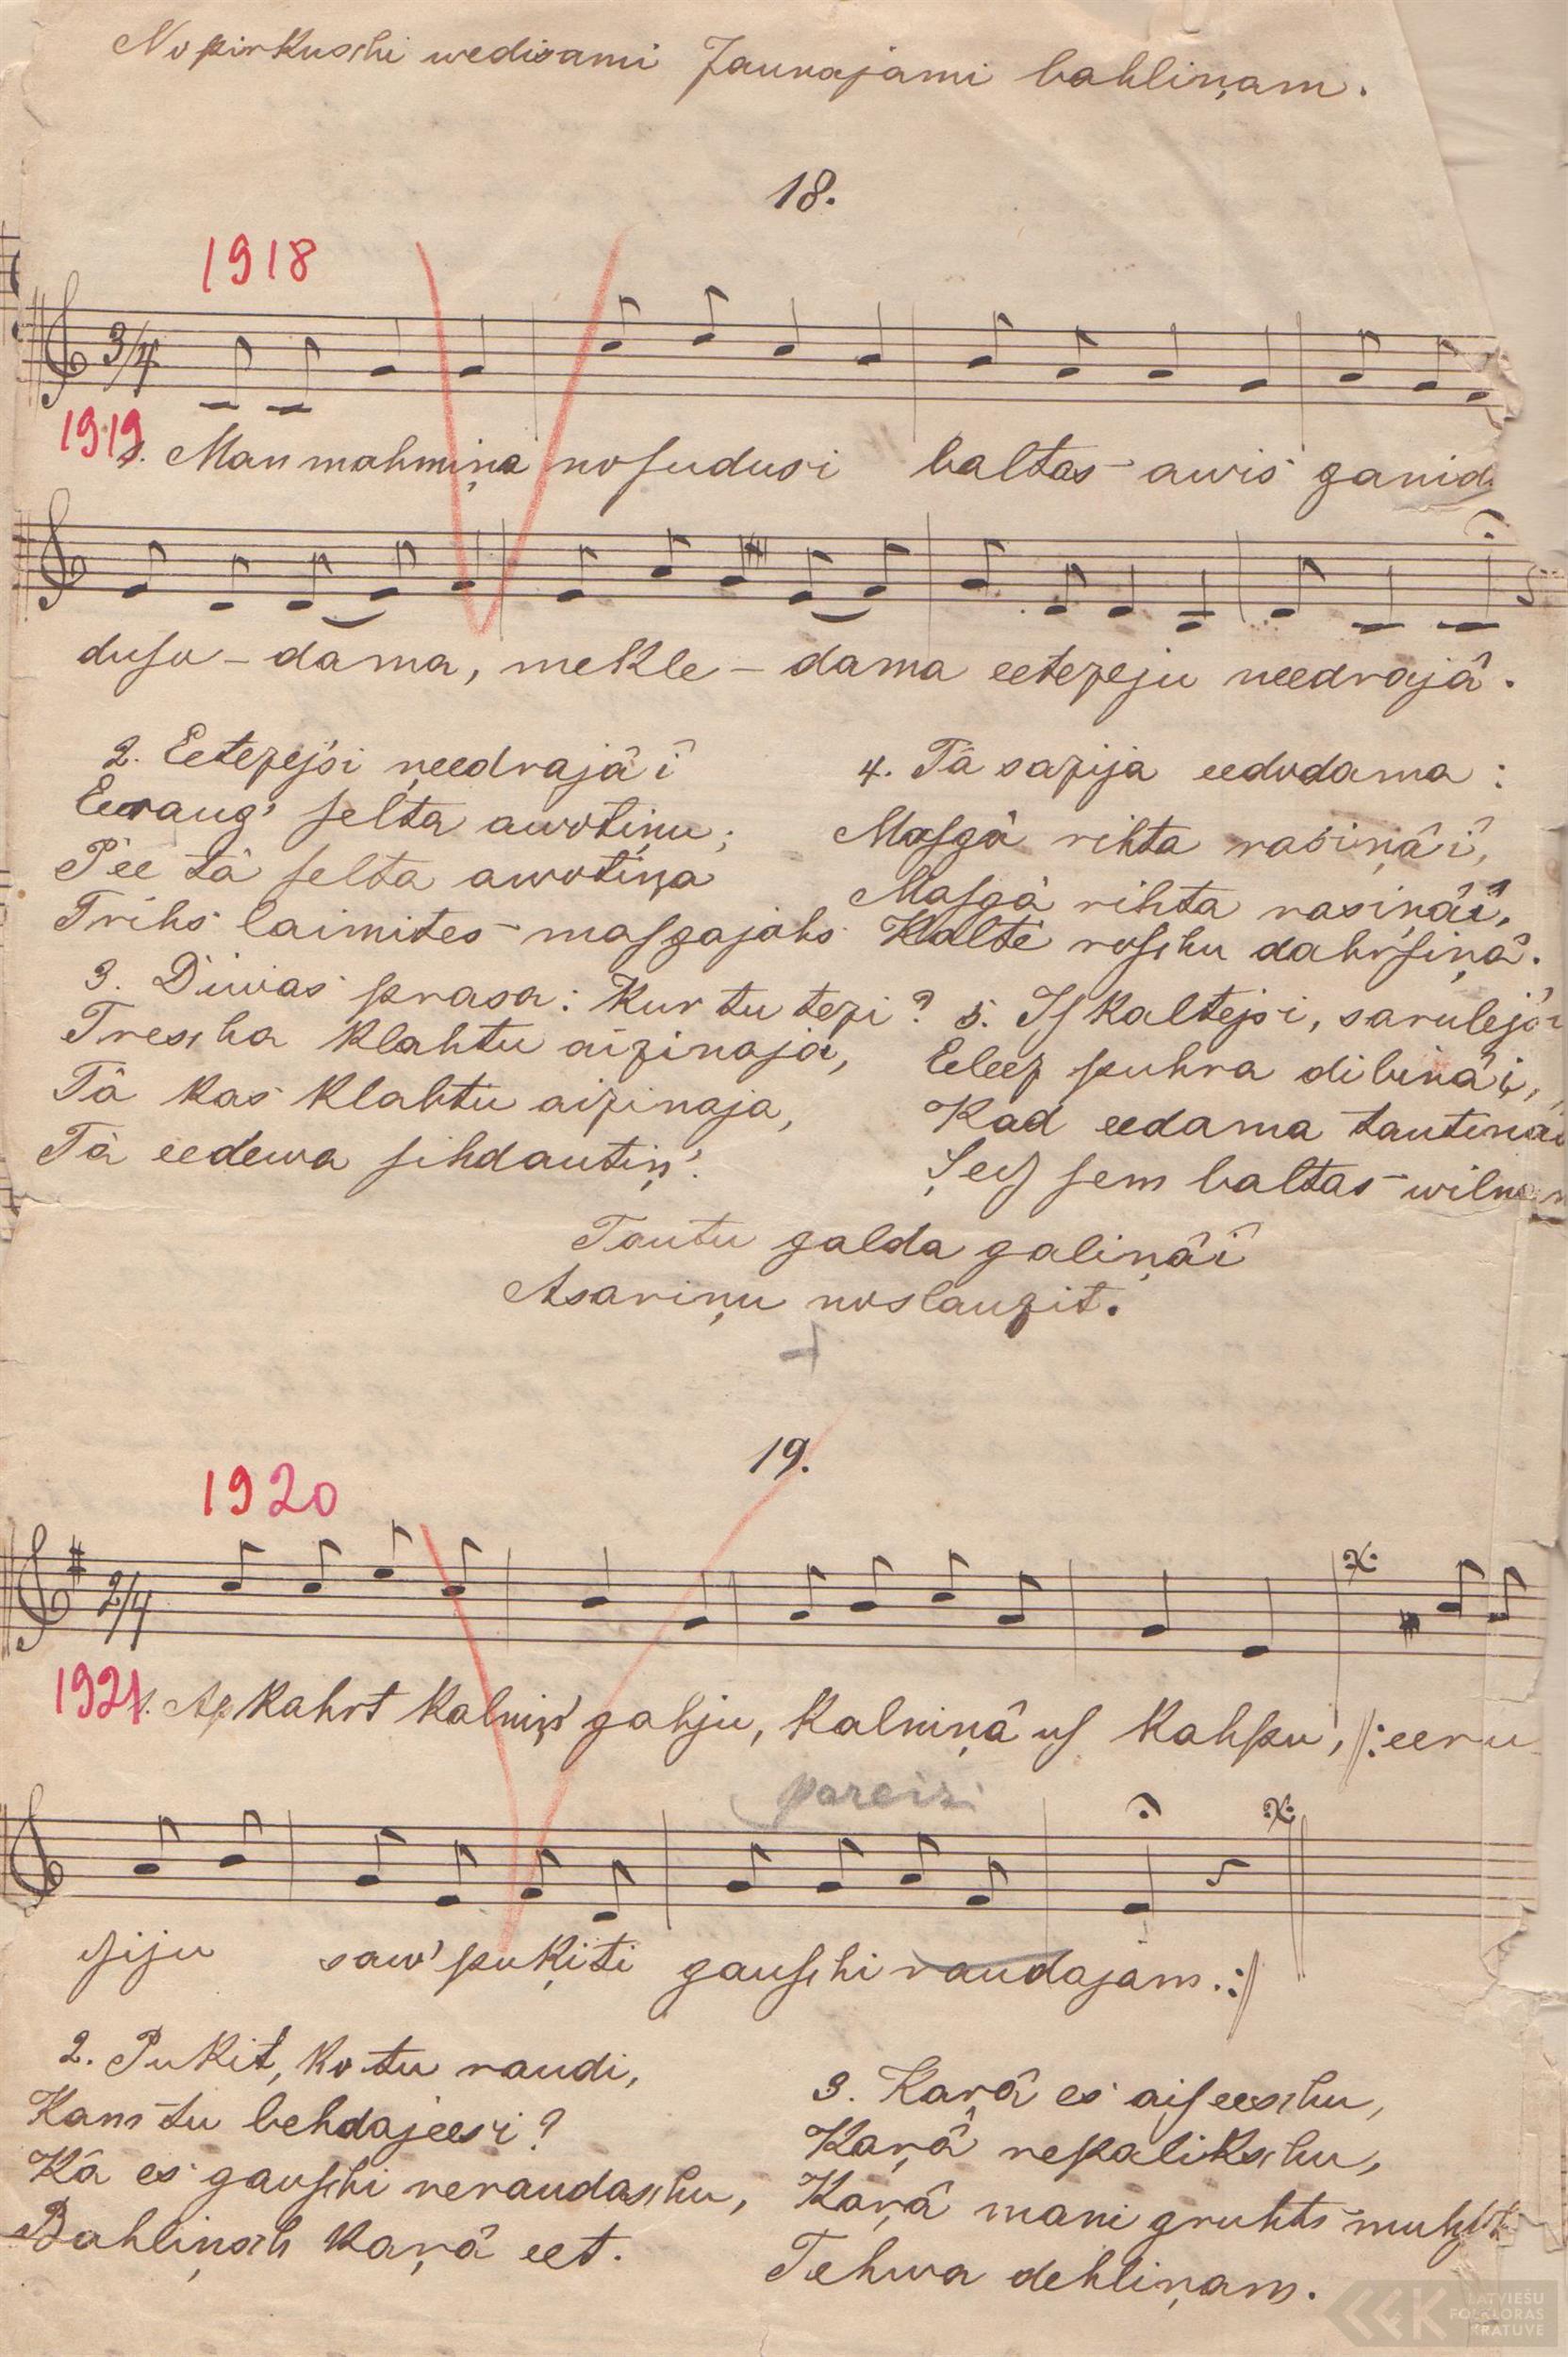 Nopirkuschi wedisami Jaunajami bahliņam.
18.
1918
3/4
1919
1. Man mahmiņa nosudusi baltas awis ganid
duso - dama, mekle - dama eetezeju needrajâ.
2. Eetezejsi needrajâi
Eeraug' selta awotiņu;
Pee tâ selta awotiņa
Trihs laimites masgajahs
3. Diwas prasa: Kur tu tezi?
Trescha klahtu aizinaja,
Tâ kas klahtu aizinaja,
Tâ eedewa sihdautiņ'.
4. Tâ sazija eedodama:
Masgâ rihta rasiņâi,
Masgâ rihta rasiņâi,
Kaltê roschu dahrsiņâ.
5. Iskaltejsi, sarulejsi
Eeleez puhra dibinâi,
Kad eedama tautinâi
Ņes sem baltas wilnan
Tautu galda galiņâi
Asariņu noslauzit.
19.
1920
2/4
1921
1. Apkahrt kalniņ' gahju, kalniņâ us kahpu, /: eeru
siju saw' puķiti gauschi raudajam. :/
pareizi
2. Pukit, ko tu raudi,
Kam tu behdajeesi?
Kâ es gauschi neraudaschu,
Bahliņsch kaŗâ eet.
3. Kaŗâ es aiseeschu,
Kaŗâ nepalikschu,
Kaŗâ mani gruhti
Tehwa dehliņam.
LATVIEŠU
FOLKLORAS
KRATUVE